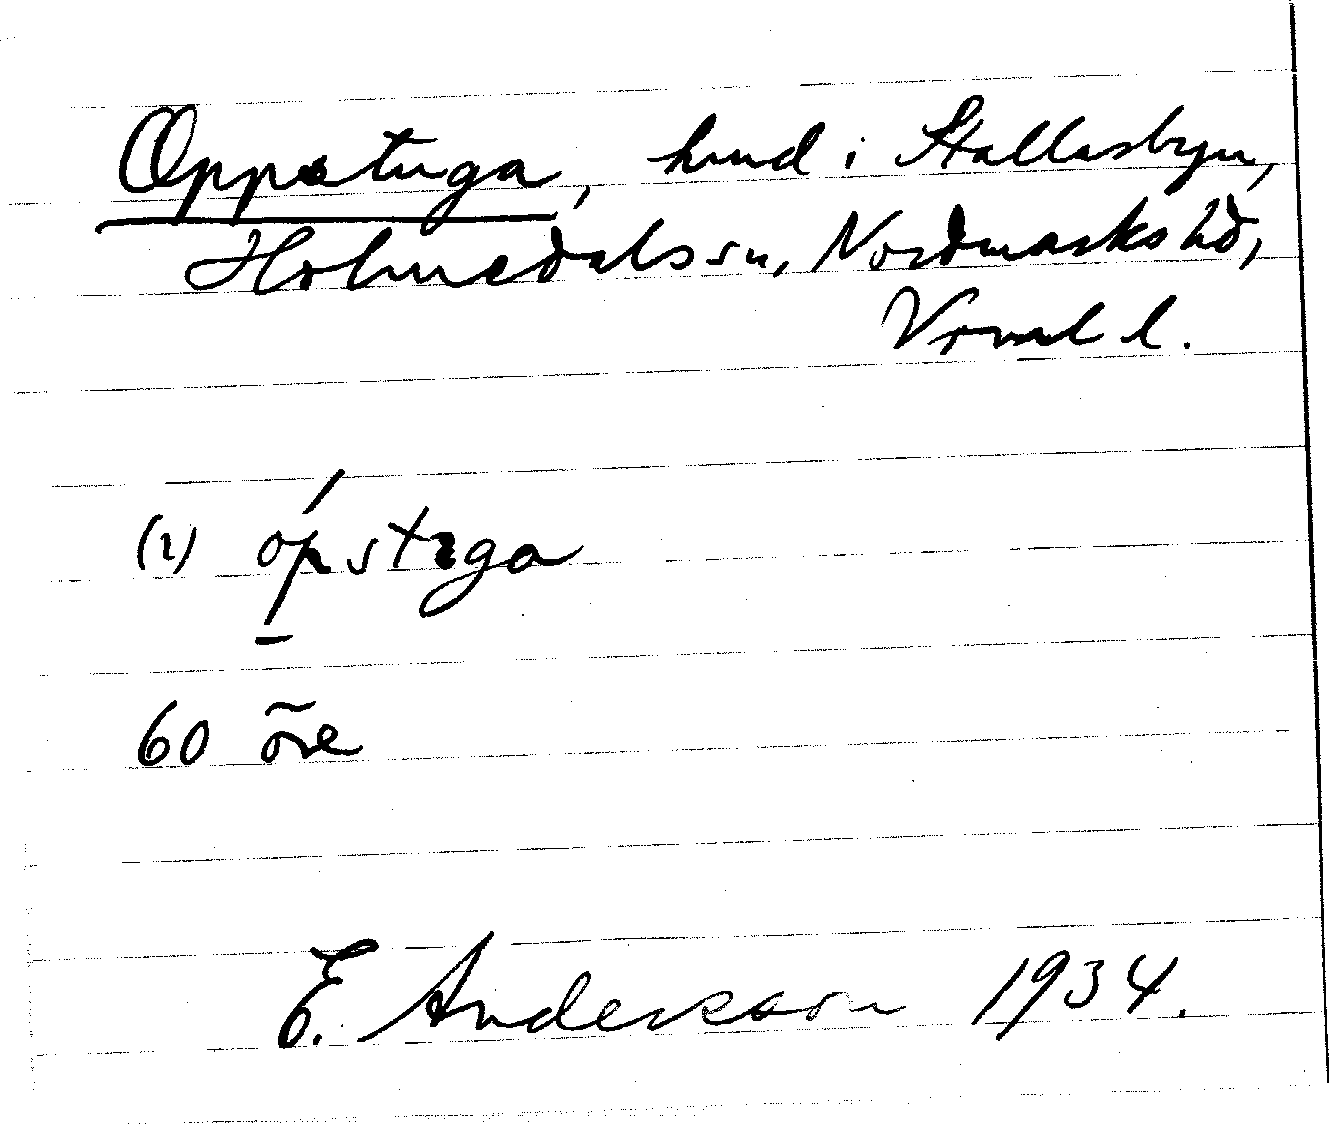 Oppstuga, hmd i Stallasbyn,
Holmedals sn, Nordmarks hd,
Vrml l.
(i) ópstɩga
60 öre
E. Andersson 1934.